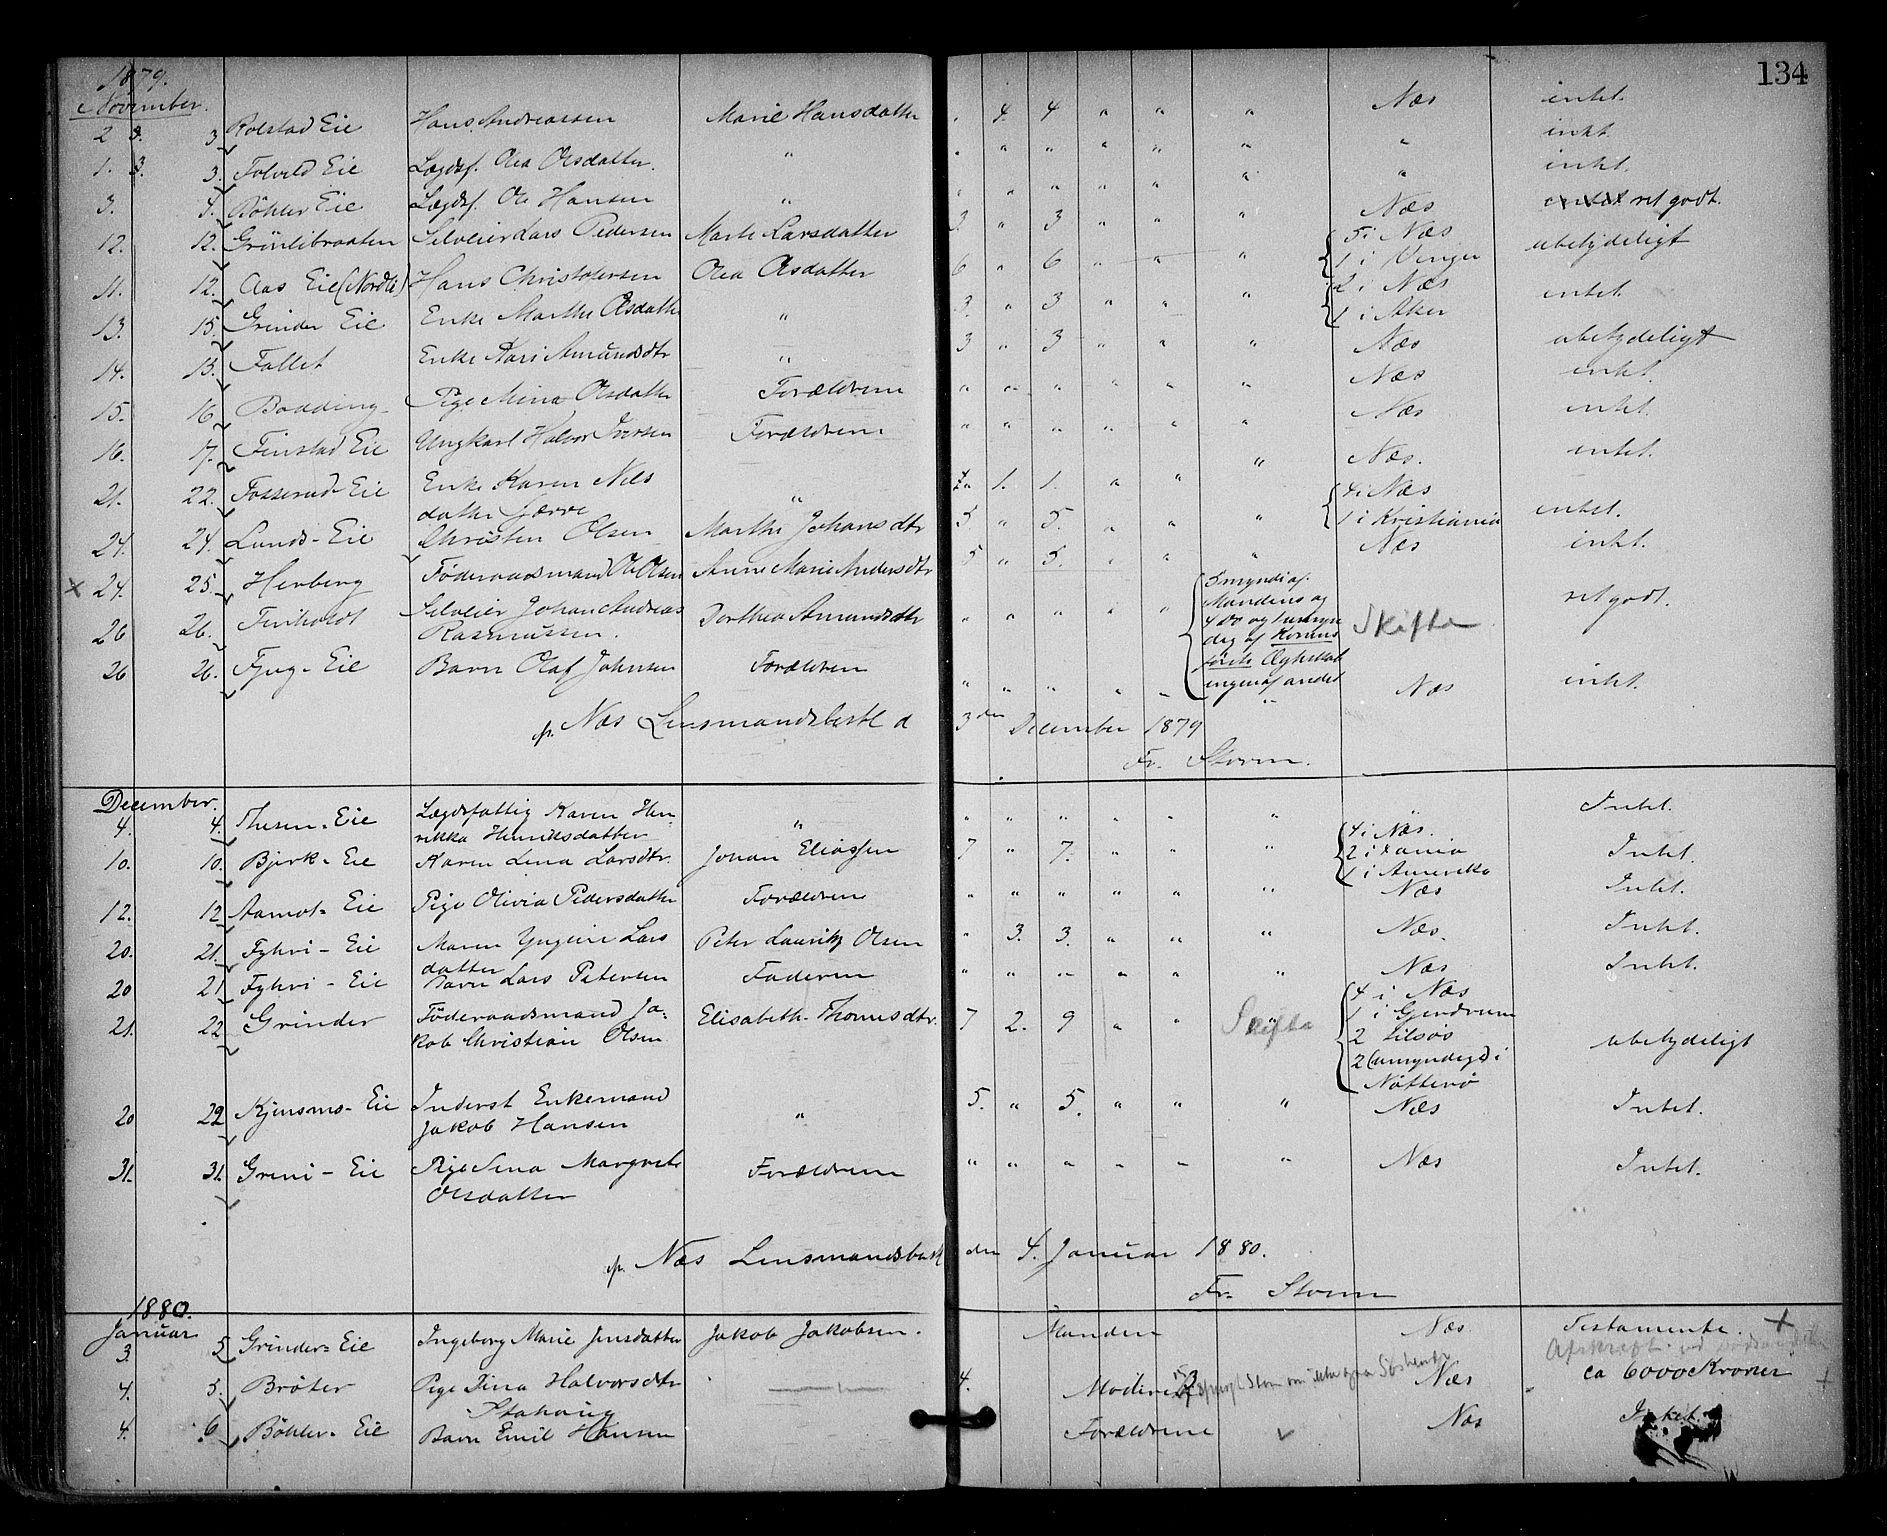 134
1879.
November.
2 3. 3 Rolstad Eie Hans Andreassen Marie Hansdatter " 4. 4 " " " Næs intet.
1. 3. 3. Eie Lægdsf. Olea Olsdatter. " " " " " " " " intet.
3. 4. Böhler Eie Lægdsf. Ole Hansen " " " " " " " " intet.
12. 12. Grönlibraaten Selveier Lars Pedersen Marte Larsdatter 3 " 3 " " " Næs ret godt.
11. 12. Aas Eie (Nordli) Hans Christofersen Olea Olsdatter 6 " 6 " " " 5 i Næs
1 i Vinger
ubetydeligt
13. 15. Grinder Eie Enke Marthe Olsdatter " 3. " 3 " " " 2 i Næs
1 i Aker
intet.
14. 15. Fallet Enke Kari Amundsdtr " 3 " 3 " " " Næs ubetydeligt
15. 16 Bodding Pige Mina Olsdatter Forældrene " " " " " " Næs intet.
16. 17. Finstad Eie Ungkarl Halvor Iversen Forældrene " " " " " " Næs intet.
21. 22. Fosserud Eie Enke Karen Nils
datter
" 1. 1. " " " Næs. intet.
24. 24. Lunds-Eie Christen Olsen Marthe Johansdtr 5. " 5. " " " 4 i Næs
1 i Kristiania
intet.
x 24. 25. Herberg Föderaadsmand Ole Olsen Anne Marie Andersdtr 5 " 5. " " " Næs intet.
26 26. Finholdt Selveier Johan Andreas
Rasmussen.
Dorthea Amundsdtr " " " " " 5 myndi af
Mandens og
4 do og 1 umyn
dig af Konens
første Ægteskab
ingen af andet
Skifte ret godt.
26 26. Fjug-Eie Barn Olaf Johnsen Forældrene " " " " " " Næs intet.
p. Næs Lensmandsbestl d 3den December 1879
Fr. Storm.
December.
4. 4. Thesen-Eie Lægdsfattig Karen Hen-
rikka Henriksdatter
" " " " " " " " Intet.
10. 10. Bjerk-Eie Karen Lina Larsdtr. Johan Eliassen 7 " 7. " " " 4 i Næs.
2 i Xania
1 i Amerika
Intet.
12. 12 Aamot-Eie Pige Olivia Pedersdatter Forældrene " " " " " " Næs Intet.
20. 21. Fyhri-Eie Maren Lars
datter
Peter Lauritz Olsen " 3. 3. " " " Næs. Intet.
20 21 Fyhri-Eie Barn Lars Petersen Faderen " " " " " " Næs Intet.
21. 22 Grinder Föderaadsmand Ja-
kob Christian Olsen
Elisabeth Thomsdtr. 7 2. 9 " " Skifte 4 i Næs
1 i Gjerdrum
2
2 (umyndige) i
Nötterö
ubetydeligt
20 22 Kjensmo-Eie Inderst Enkemand
Jakob Hansen
" 5. " 5. " " " Næs Intet.
31. 31. Greni-Eie Pige Lina Margrete
Olsdatter
Forældrene " " " " " " Næs Intet.
p. Næs Lensmandsbestl den 4. Januar 1880.
Fr. Storm
1880.
Januar
3. 5 Grinder-Eie Ingeborg Marie Jensdatter Jakob Jakobsen. Manden Næs Testamente. +
4. 5. Bröter Pige Dina Halvorsdtr
4. Moderen Næs ca 6000 Kroner +
4. 6 Böhler-Eie Barn Emil Hansen Forældrene Næs Intet.